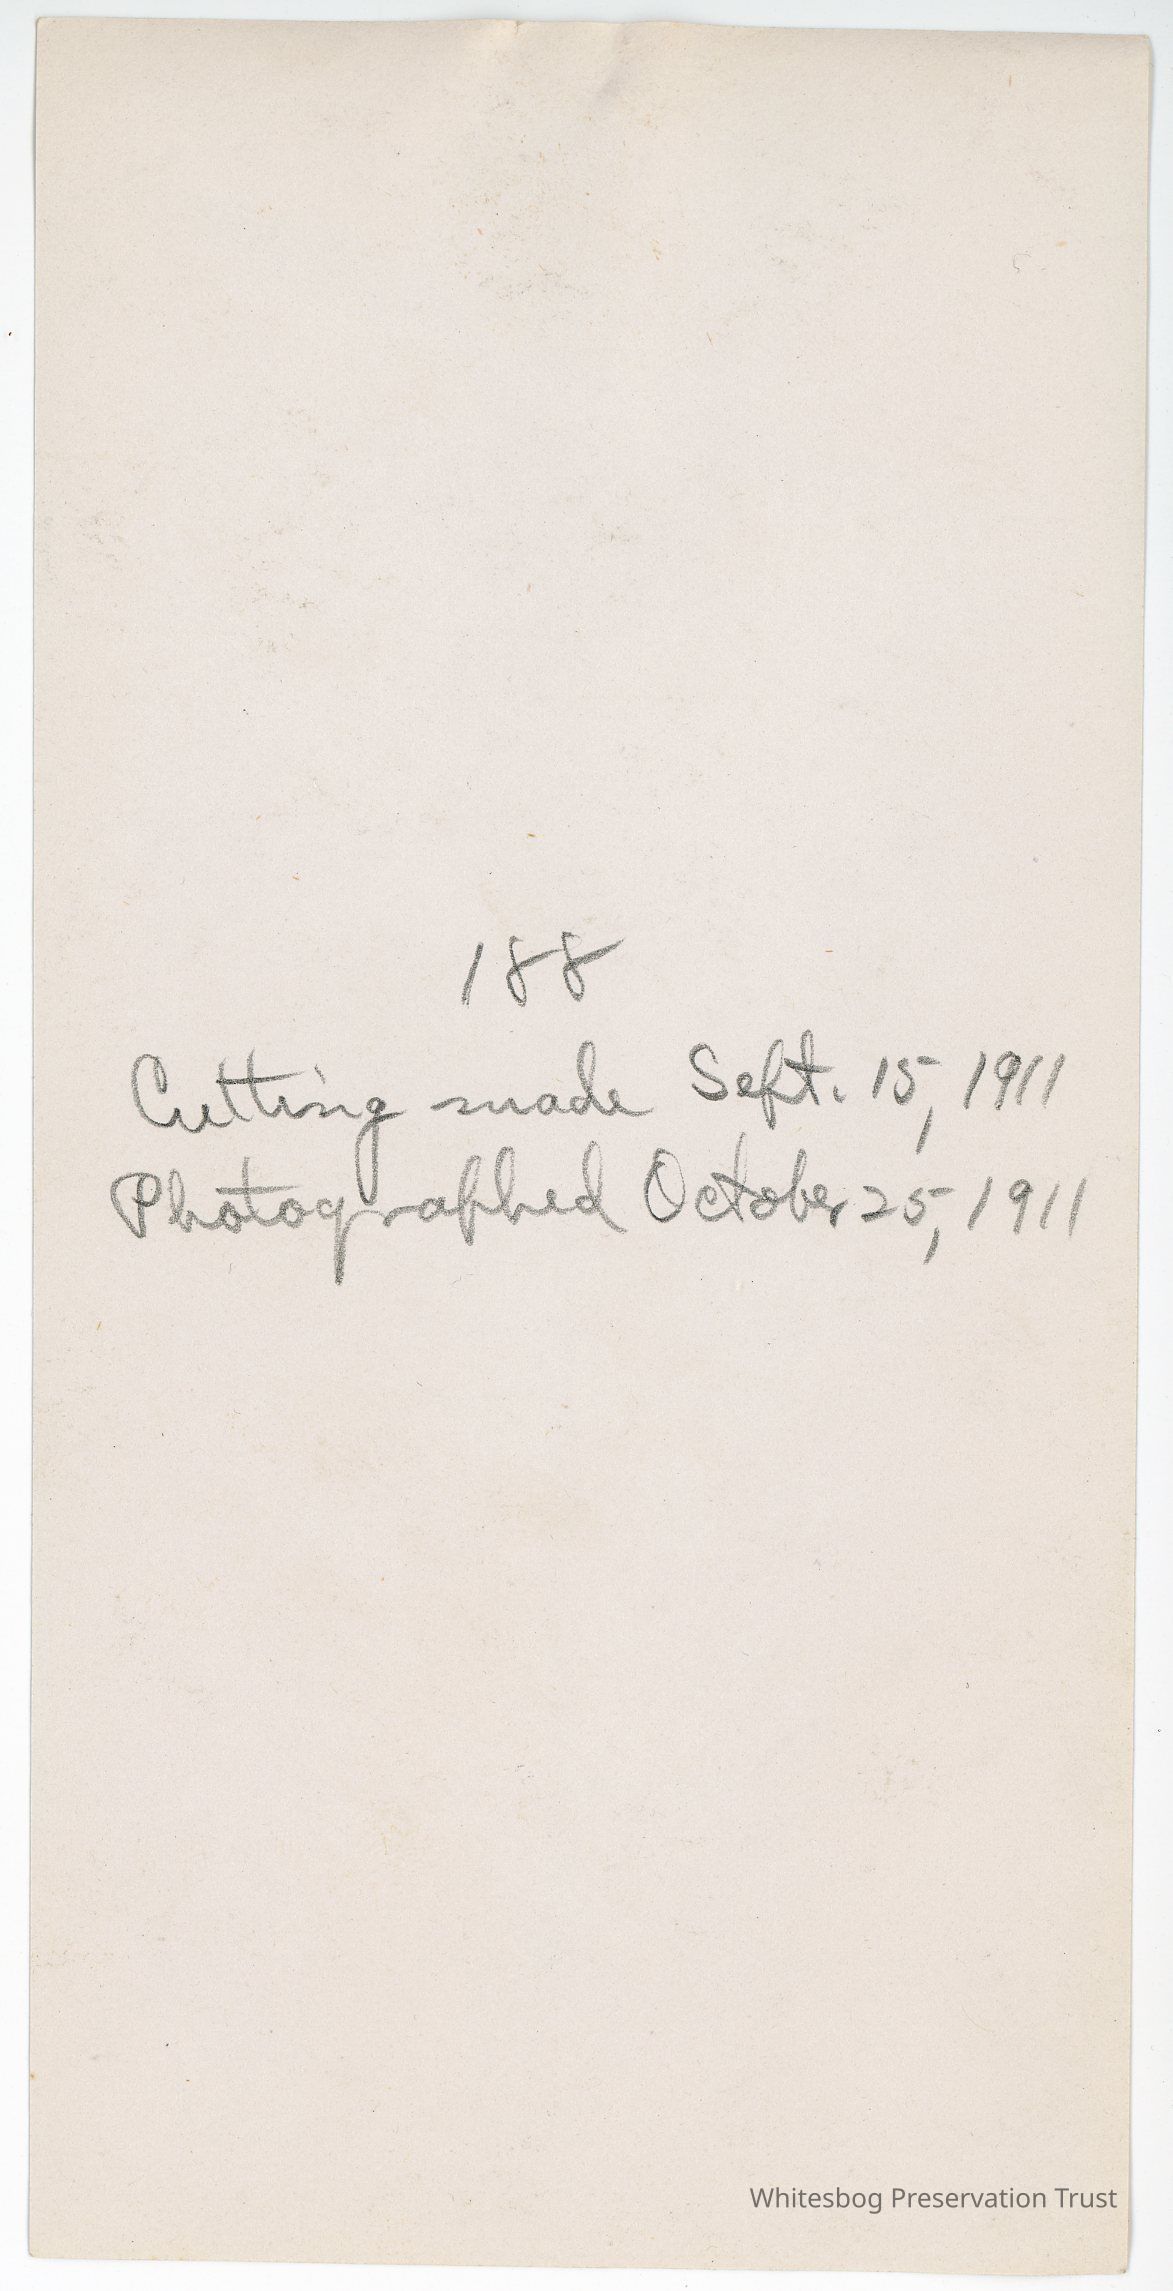 188
Cutting made Sept. 15, 1911
Photographed October 25, 1911
Whitesbog Preservation Trust